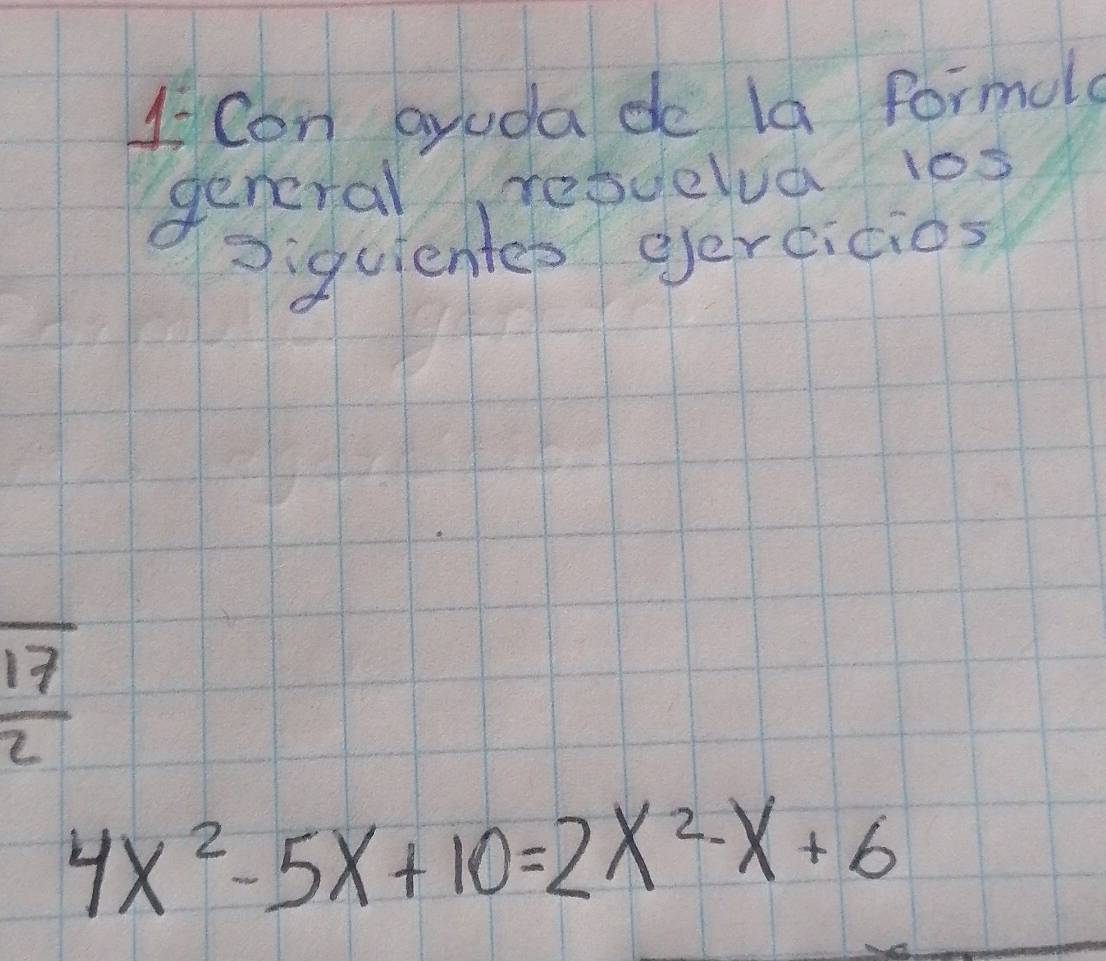 1= Con ayuda de la formul
general, resuelva los
siguientes ejercicios
17
2
4x² - 5x + 10 = 2x² - x + 6